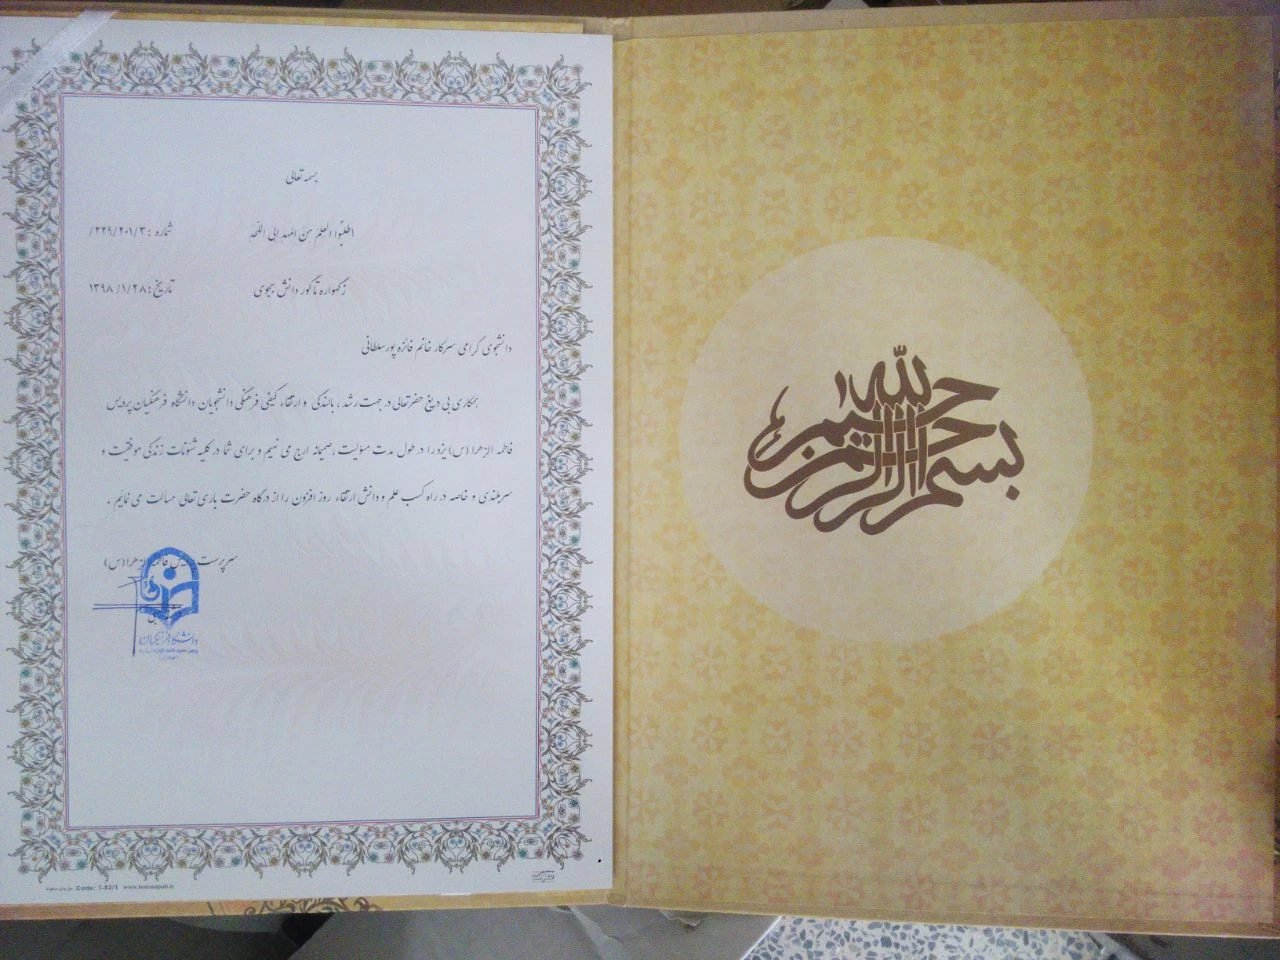 بسمه تعالی
اطلبُوا العِلمَ مِنَ المَهدِ اِلیَ اللَحَدِ
شماره : ۲۲۹/۲۰۱/۳/
زگهواره تا گور دانش بجوی
تاریخ : ۱۳۹۸/۱/۲۸
دانشجوی گرامی سرکار خانم فائزه پورسلطانی
همکاری بی دریغ حضرتعالی در جهت رشد ، بالندگی و ارتقاء کیفی فرهنگی دانشجویان دانشگاه فرهنگیان پردیس
فاطمه الزهرا (س) یزد را در طول مدت مسولیت ، صمیمانه ارج می نهیم و برای شما در کلیه شئونات زندگی موفقیت و
سربلندی و خاصه در راه کسب علم و دانش ارتقاء روز افزون را از درگاه حضرت باری تعالی مسالت می نمایم .
سرپرست پردیس فاطمه الزهرا (س)
دانشگاه فرهنگیان
Code: T-82/1 www.looresepah.ir
بسم الله الرحمن الرحیم